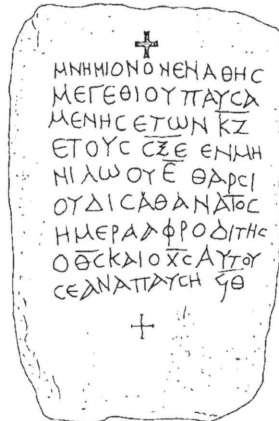 ΜΝΗΜΙΟΝΟΝΕΝΑΘΗϹ
ΜΕΓΕΘΙΟΥΠΑΥϹΑ
ΜΕΝΗϹΕΤΩΝ Κ̅Ζ̅
ΕΤΟΥϹ Ϲ̅Ξ̅Ε̅ ΕΝΜΗ
ΝΙΛΩΟΥΕ̅ ΘΑΡϹΙ
ΟΥΔΙϹΑΘΑΝΑΤΟϹ
ΗΜΕΡΑΑΦΡΟΔΙΤΗϹ
ΟΘ̅Ϲ̅ΚΑΙΟΧ̅Ϲ̅ΑΥΤΟΥ
ϹΕΑΝΑΠΑΥϹΗ ϘΘ